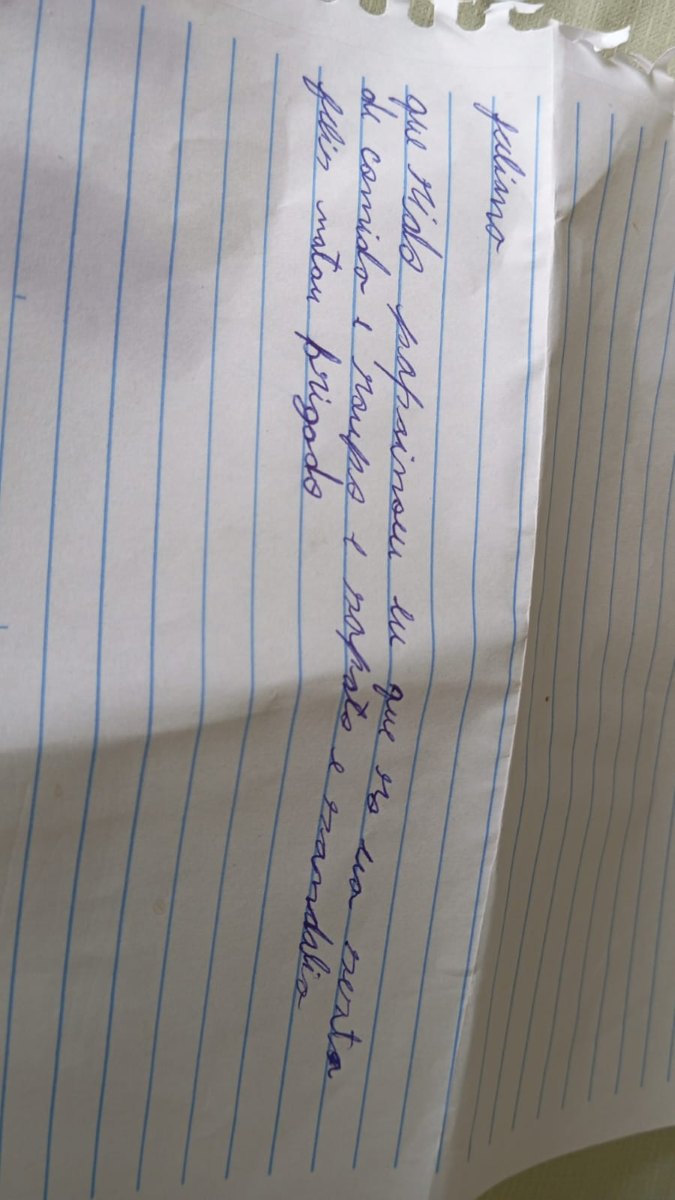 juliano
que rido papainoeu eu que ro ua sexta
di comida e roupa e sapato e sandalia
felis natau brigado